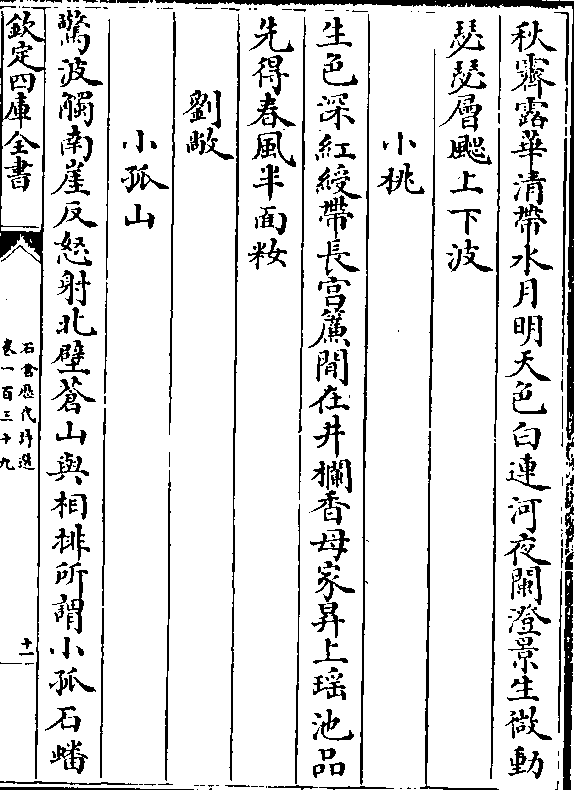 秋霽露華清帶水月明天色白連河夜闌澄景生微動
瑟瑟層颸上下波
小桃
生色深紅綬帶長宫簾間在井欄香母家昇上瑶池品
先得春風半面粧
劉敞
小孤山
驚波觸南崖反怒射北壁蒼山與相排所謂小孤石蟠
欽定四庫全書
石倉歷代詩選
卷一百三十九
十一